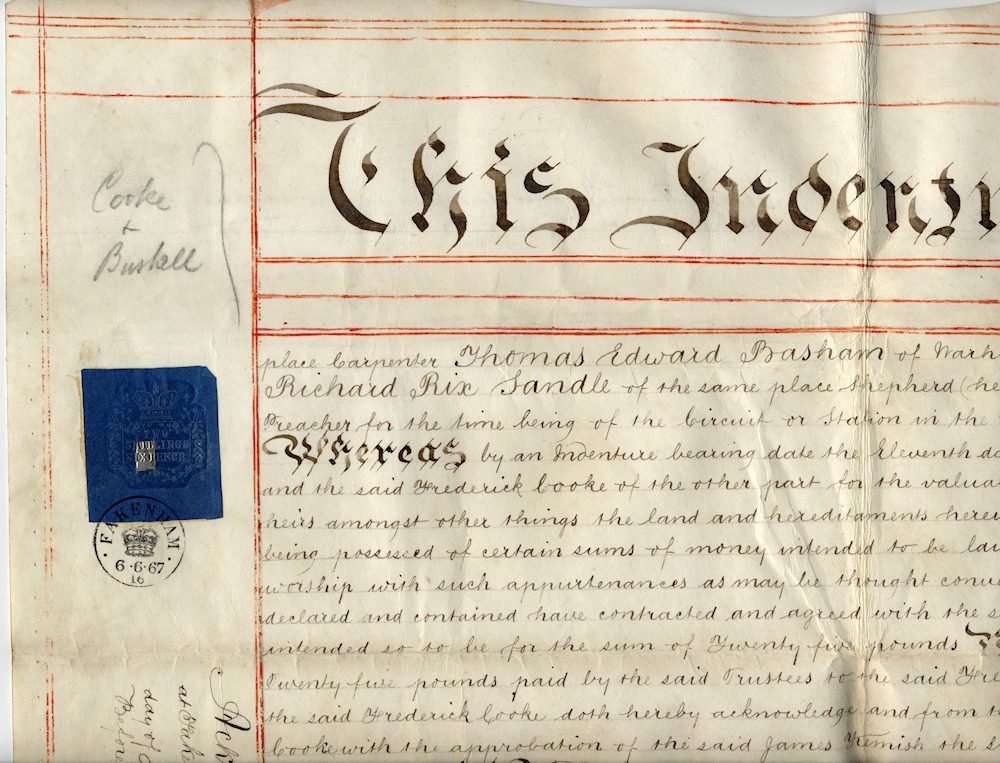 This Indentu
Cooke
+
Bushell
TWO
SHILLINGS
SIXPENCE
FAKENHAM
6·6·67
16
place Carpenter Thomas Edward Basham of Warh
Richard Rix Sandle of the same place Shepherd (he
Preacher for the time being of the Circuit or Station in the
Whereas by an Indenture bearing date the Eleventh da
and the said Frederick Cooke of the other part for the valua
heirs amongst other things the land and hereditaments herei
being possessed of certain sums of money intended to be lai
worship with such appurtenances as may be thought conve
declared and contained have contracted and agreed with the s
intended so to be for the sum of Twenty five pounds
Twenty five pounds paid by the said Trustees to the said Fre
the said Frederick Cooke doth hereby acknowledge and from t
Cooke with the approbation of the said James Flemish the s
Ack
at Fake
day of
Before